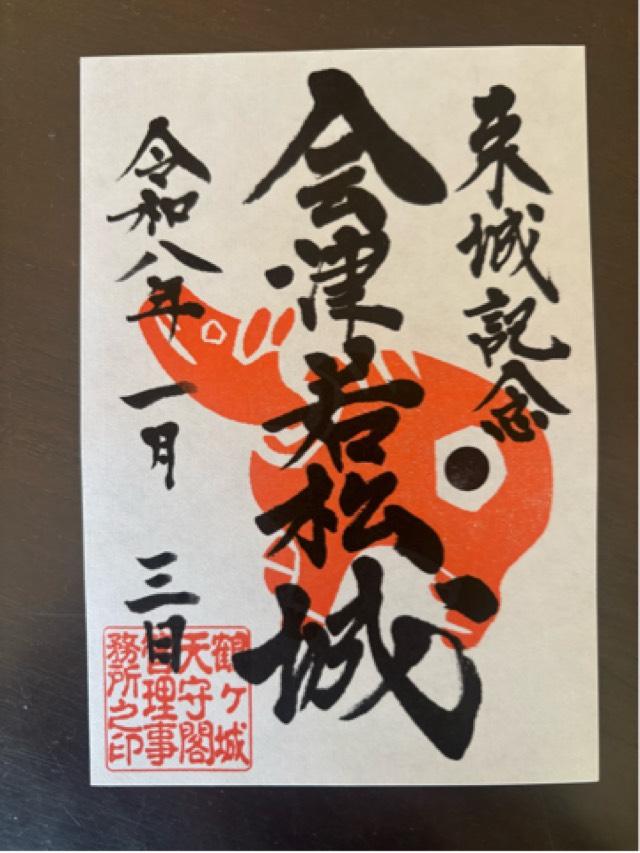 来城記念
会津若松城
令和八年 一月 三日
鶴ヶ城
天守閣
管理事
務所之印